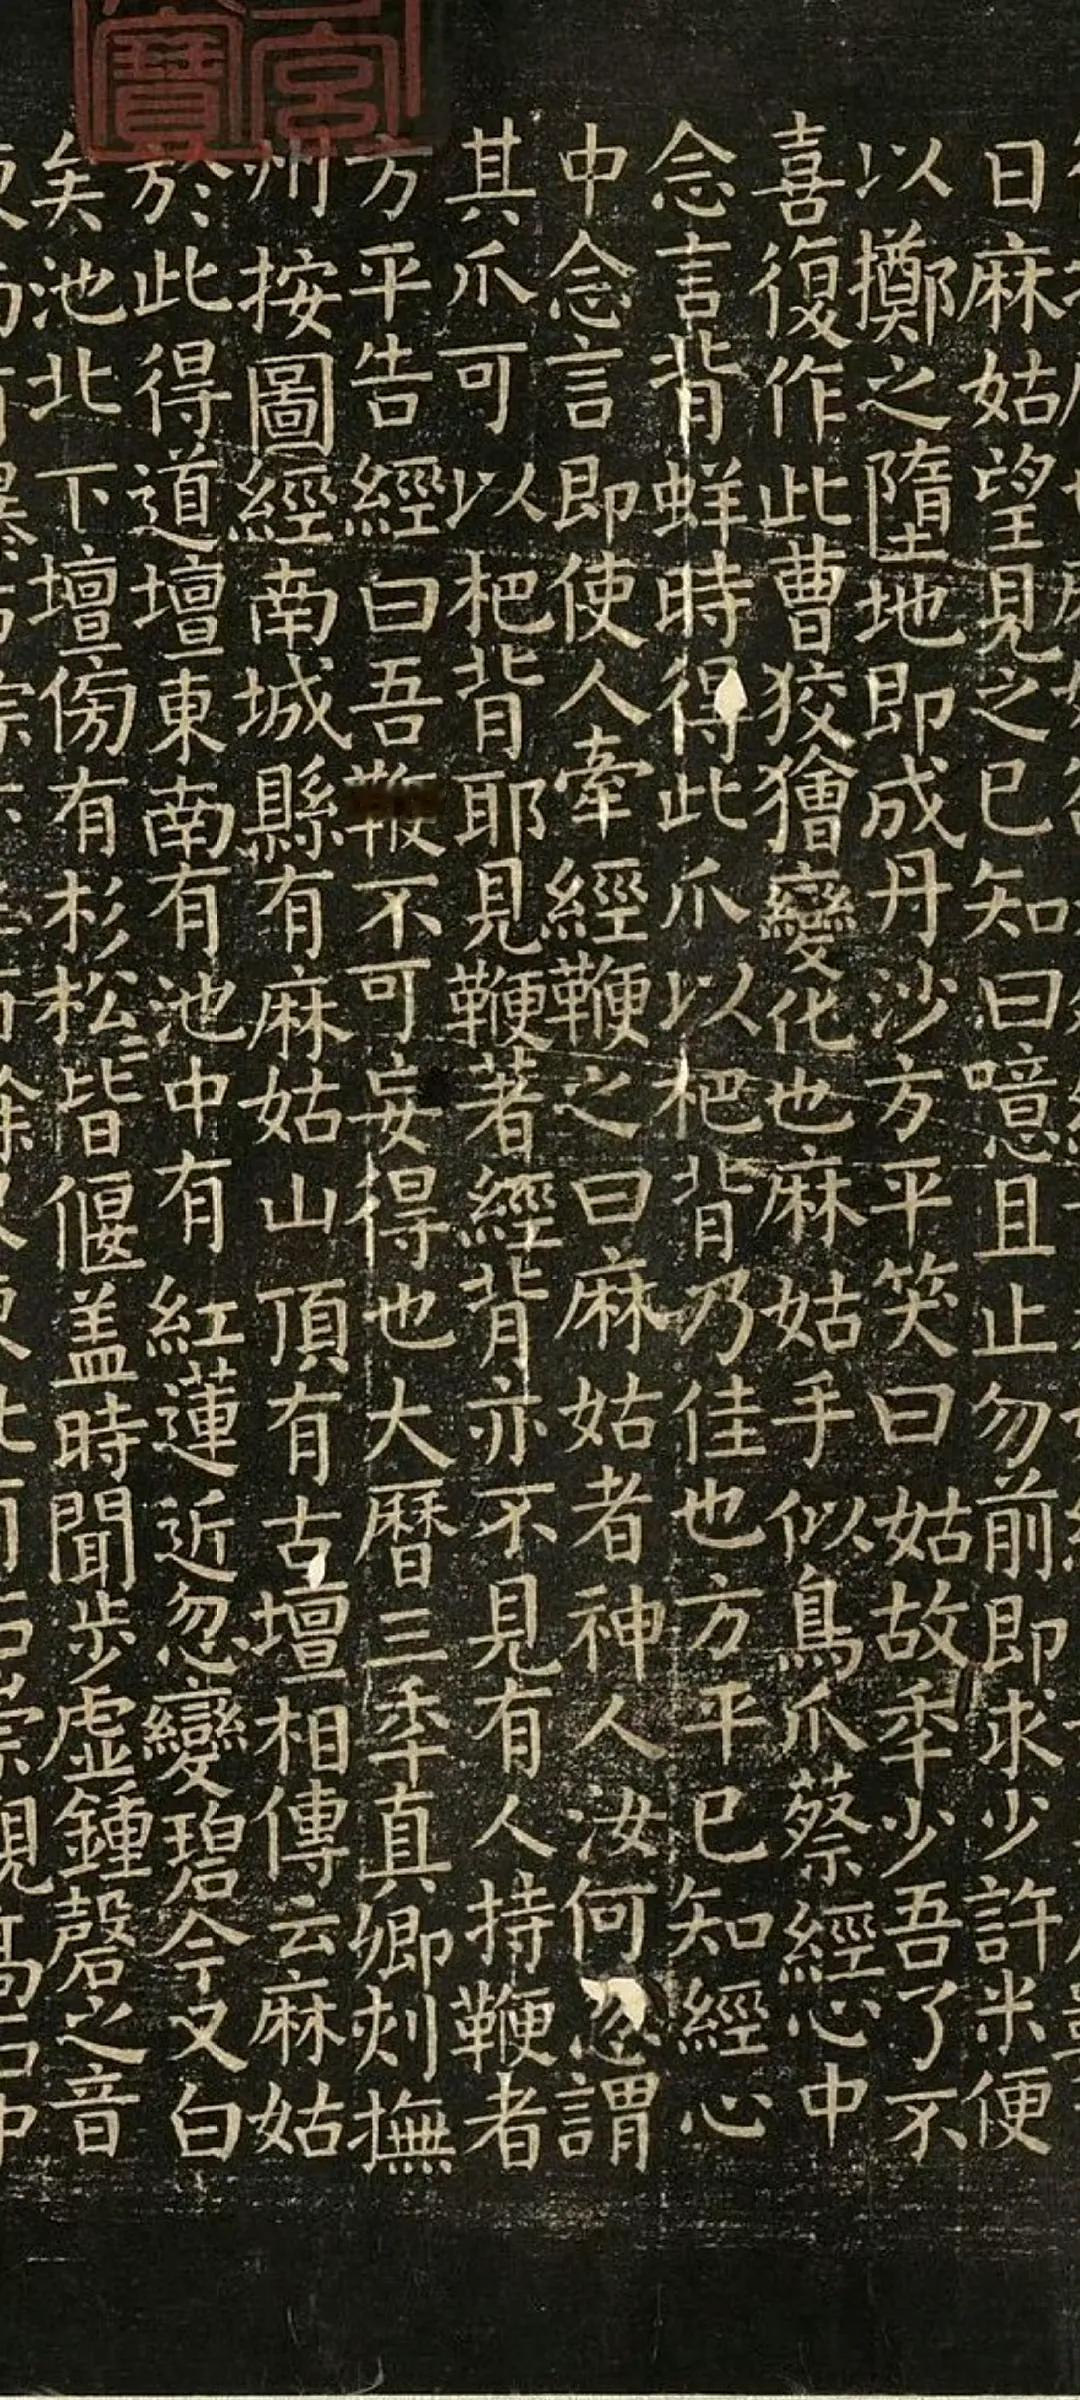 日麻姑望見之已知曰噫且止勿前即求少許米便
以擲之墮地即成丹沙方平笑曰姑故秊少吾了不
喜復作此曹狡獪變化也麻姑手似鳥爪蔡經心中
念言背蛘時得此爪以杷背乃佳也方平已知經心
中念言即使人牽經鞭之曰麻姑者神人汝何忽謂
其爪可以杷背耶見鞭著經背亦不見有人持鞭者
方平告經曰吾鞭不可妄得也大曆三秊真卿刾撫
州按圖經南城縣有麻姑山頂有古壇相傳云麻姑
於此得道壇東南有池中有紅蓮近忽變碧今又白
矣池北下壇傍有杉松皆偃盖時聞步虛鍾磬之音